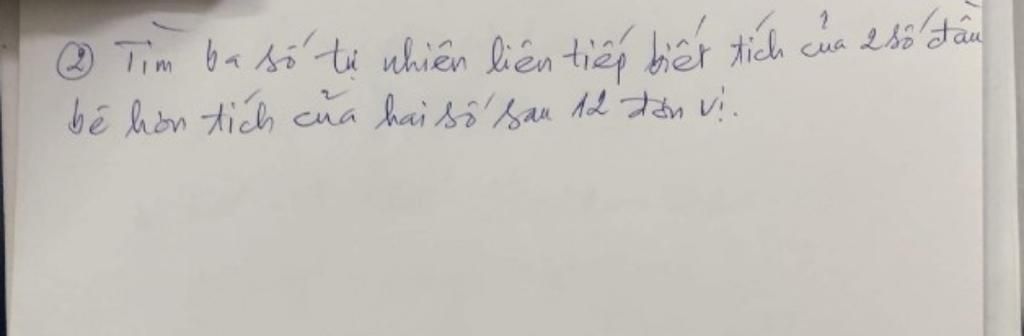 ② Tìm ba số tự nhiên liên tiếp biết tích của 2 số đầu
bé hơn tích của hai số sau 12 đơn vị.